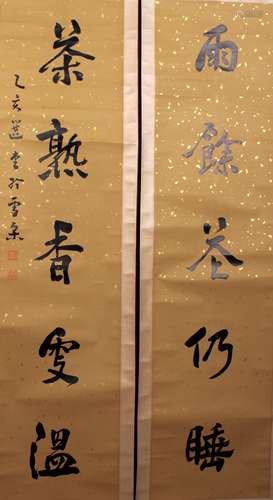 雨餘花仍睡
茶熟香更溫
乙亥選堂於雪梨